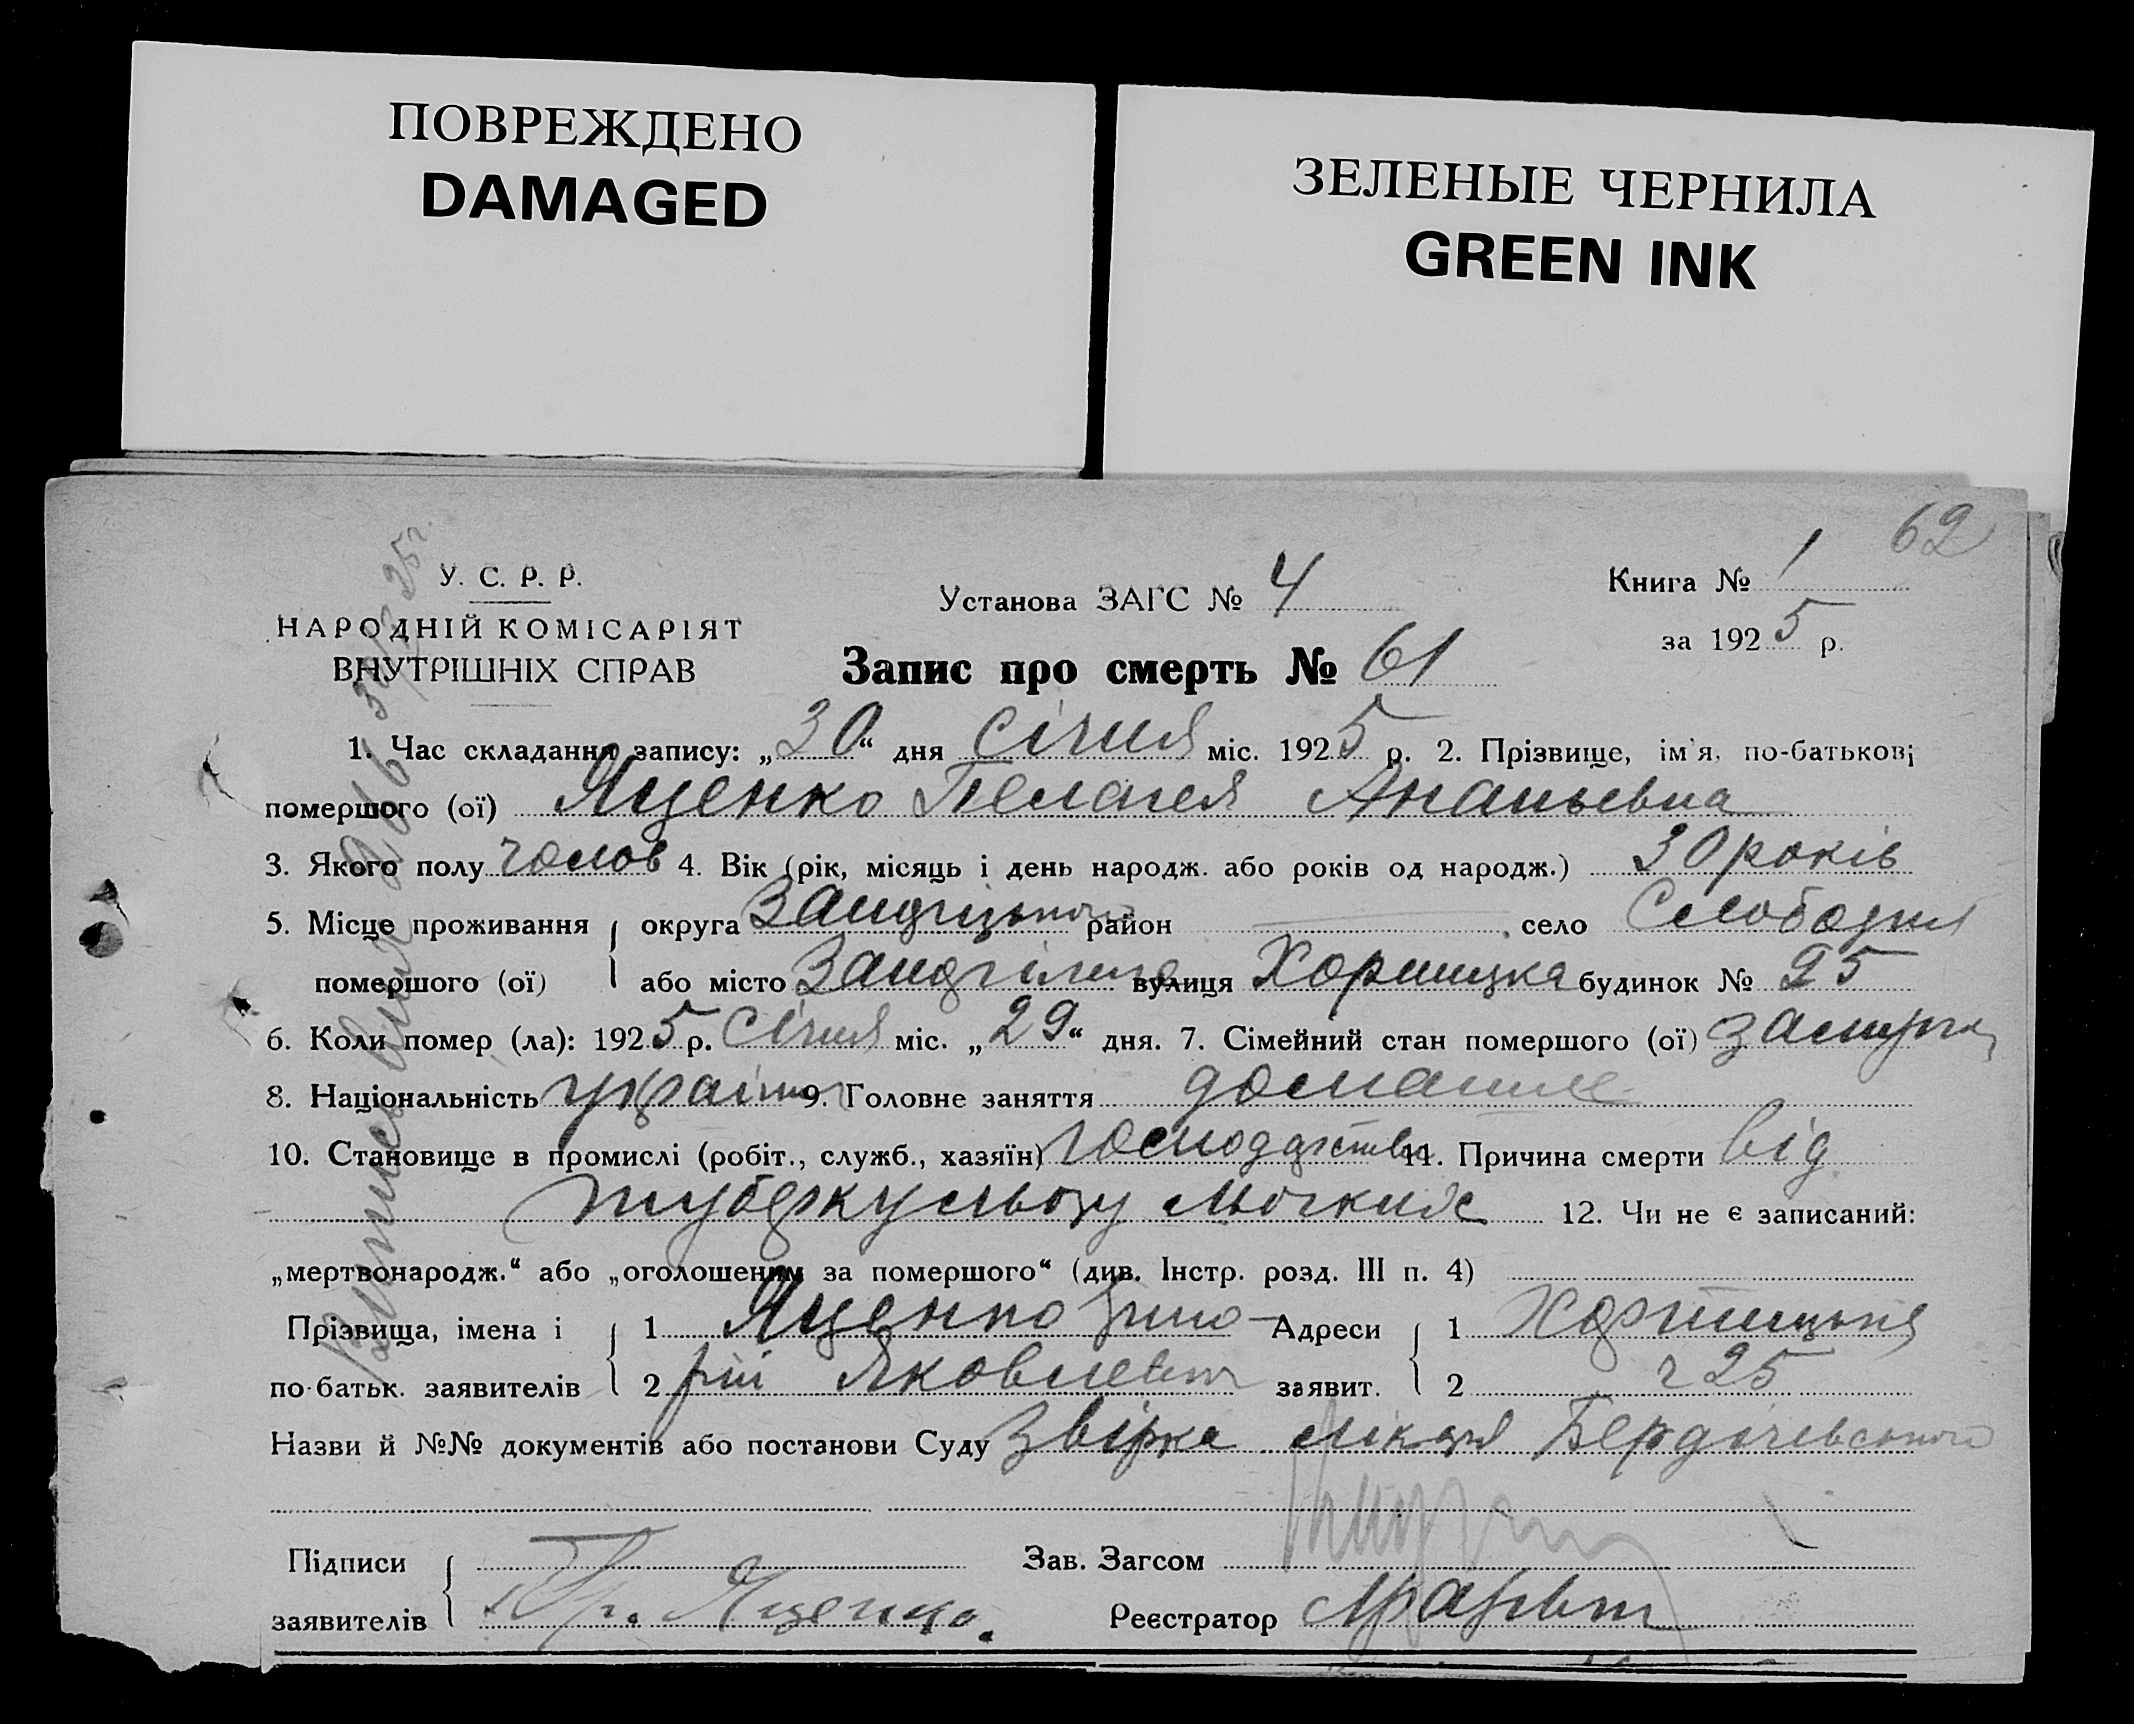 ПОВРЕЖДЕНО
DAMAGED
ЗЕЛЕНЫЕ ЧЕРНИЛА
GREEN INK
62
У. С. Р. Р.
НАРОДНІЙ КОМІСАРІЯТ
ВНУТРІШНІХ СПРАВ
Установа ЗАГС № 4
Книга № 1
за 1925 р.
Запис про смерть № 61
1. Час складання запису: „30“ дня січня міс. 1925 р. 2. Прізвище, ім'я, по-батькові
помершого (ої) Яценко Пелагея Ананьевна
3. Якого полу 4. Вік (рік, місяць і день народж. або років од народж.) 30 років
5. Місце проживання округа район село Слободка
помершого (ої) або місто вулиця будинок № 25
6. Коли помер (ла): 1925 р. Січня міс. „29“ дня. 7. Сімейний стан помершого (ої)
8. Національність україн 9. Головне заняття домашнє
10. Становище в промислі (робіт., служб., хазяїн) господарство 11. Причина смерти від
туберкульозу льогких 12. Чи не є записаний:
„мертвонародж.“ або „оголошеним за помершого“ (див. Інстр. розд. III п. 4)
Прізвища, імена і 1 Яценко Григо- Адреси 1 Хортицька
по-батьк. заявителів 2 рій Яковлевич заявит. 2 ч 25
Назви й №№ документів або постанови Суду Звірка лікаря Бердичевського
Підписи Зав. Загсом
заявителів Гр. Яценко. Реєстратор